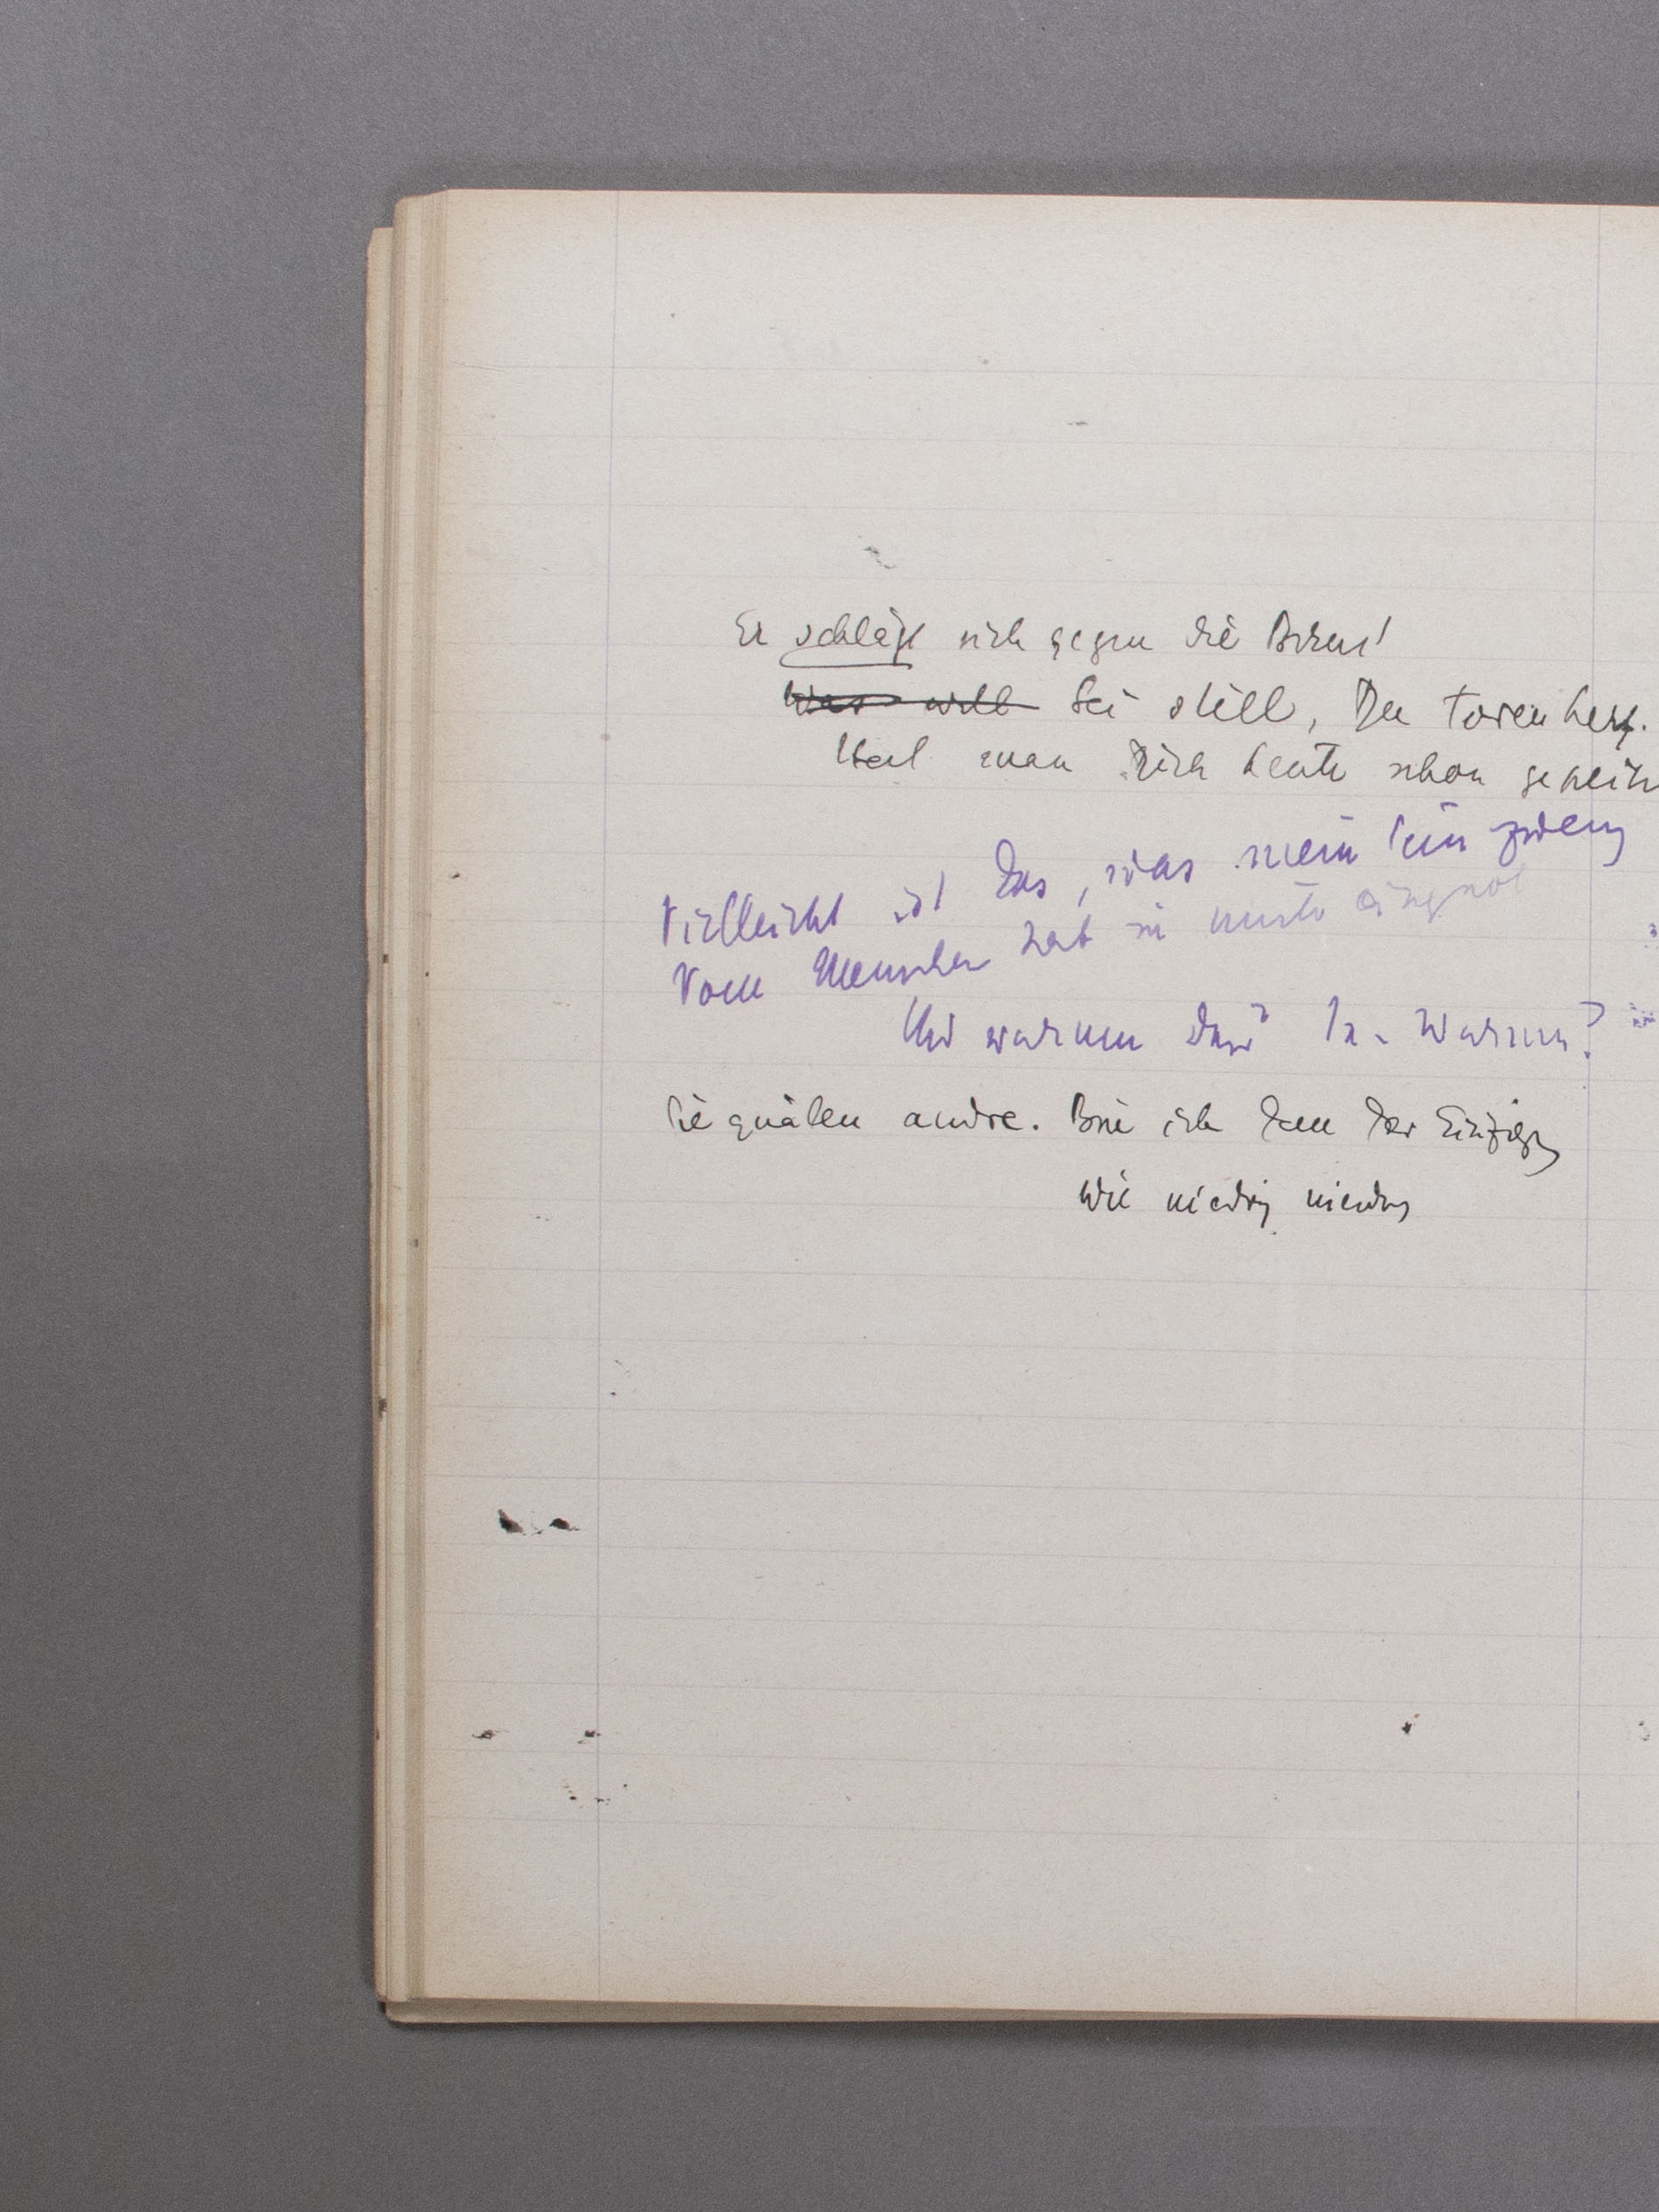 Er schlägt sich gegen die Brust
~~Was will~~ Sei still, Du Torenherz.
Weil man Dich heute schon
Vielleicht ist das, was mein Sein
Vom Menschen hat in
Und warum das? Ja. Warum?
Sie quälen andre. Bin ich denn der Einzige
Wie niedrig niedrig